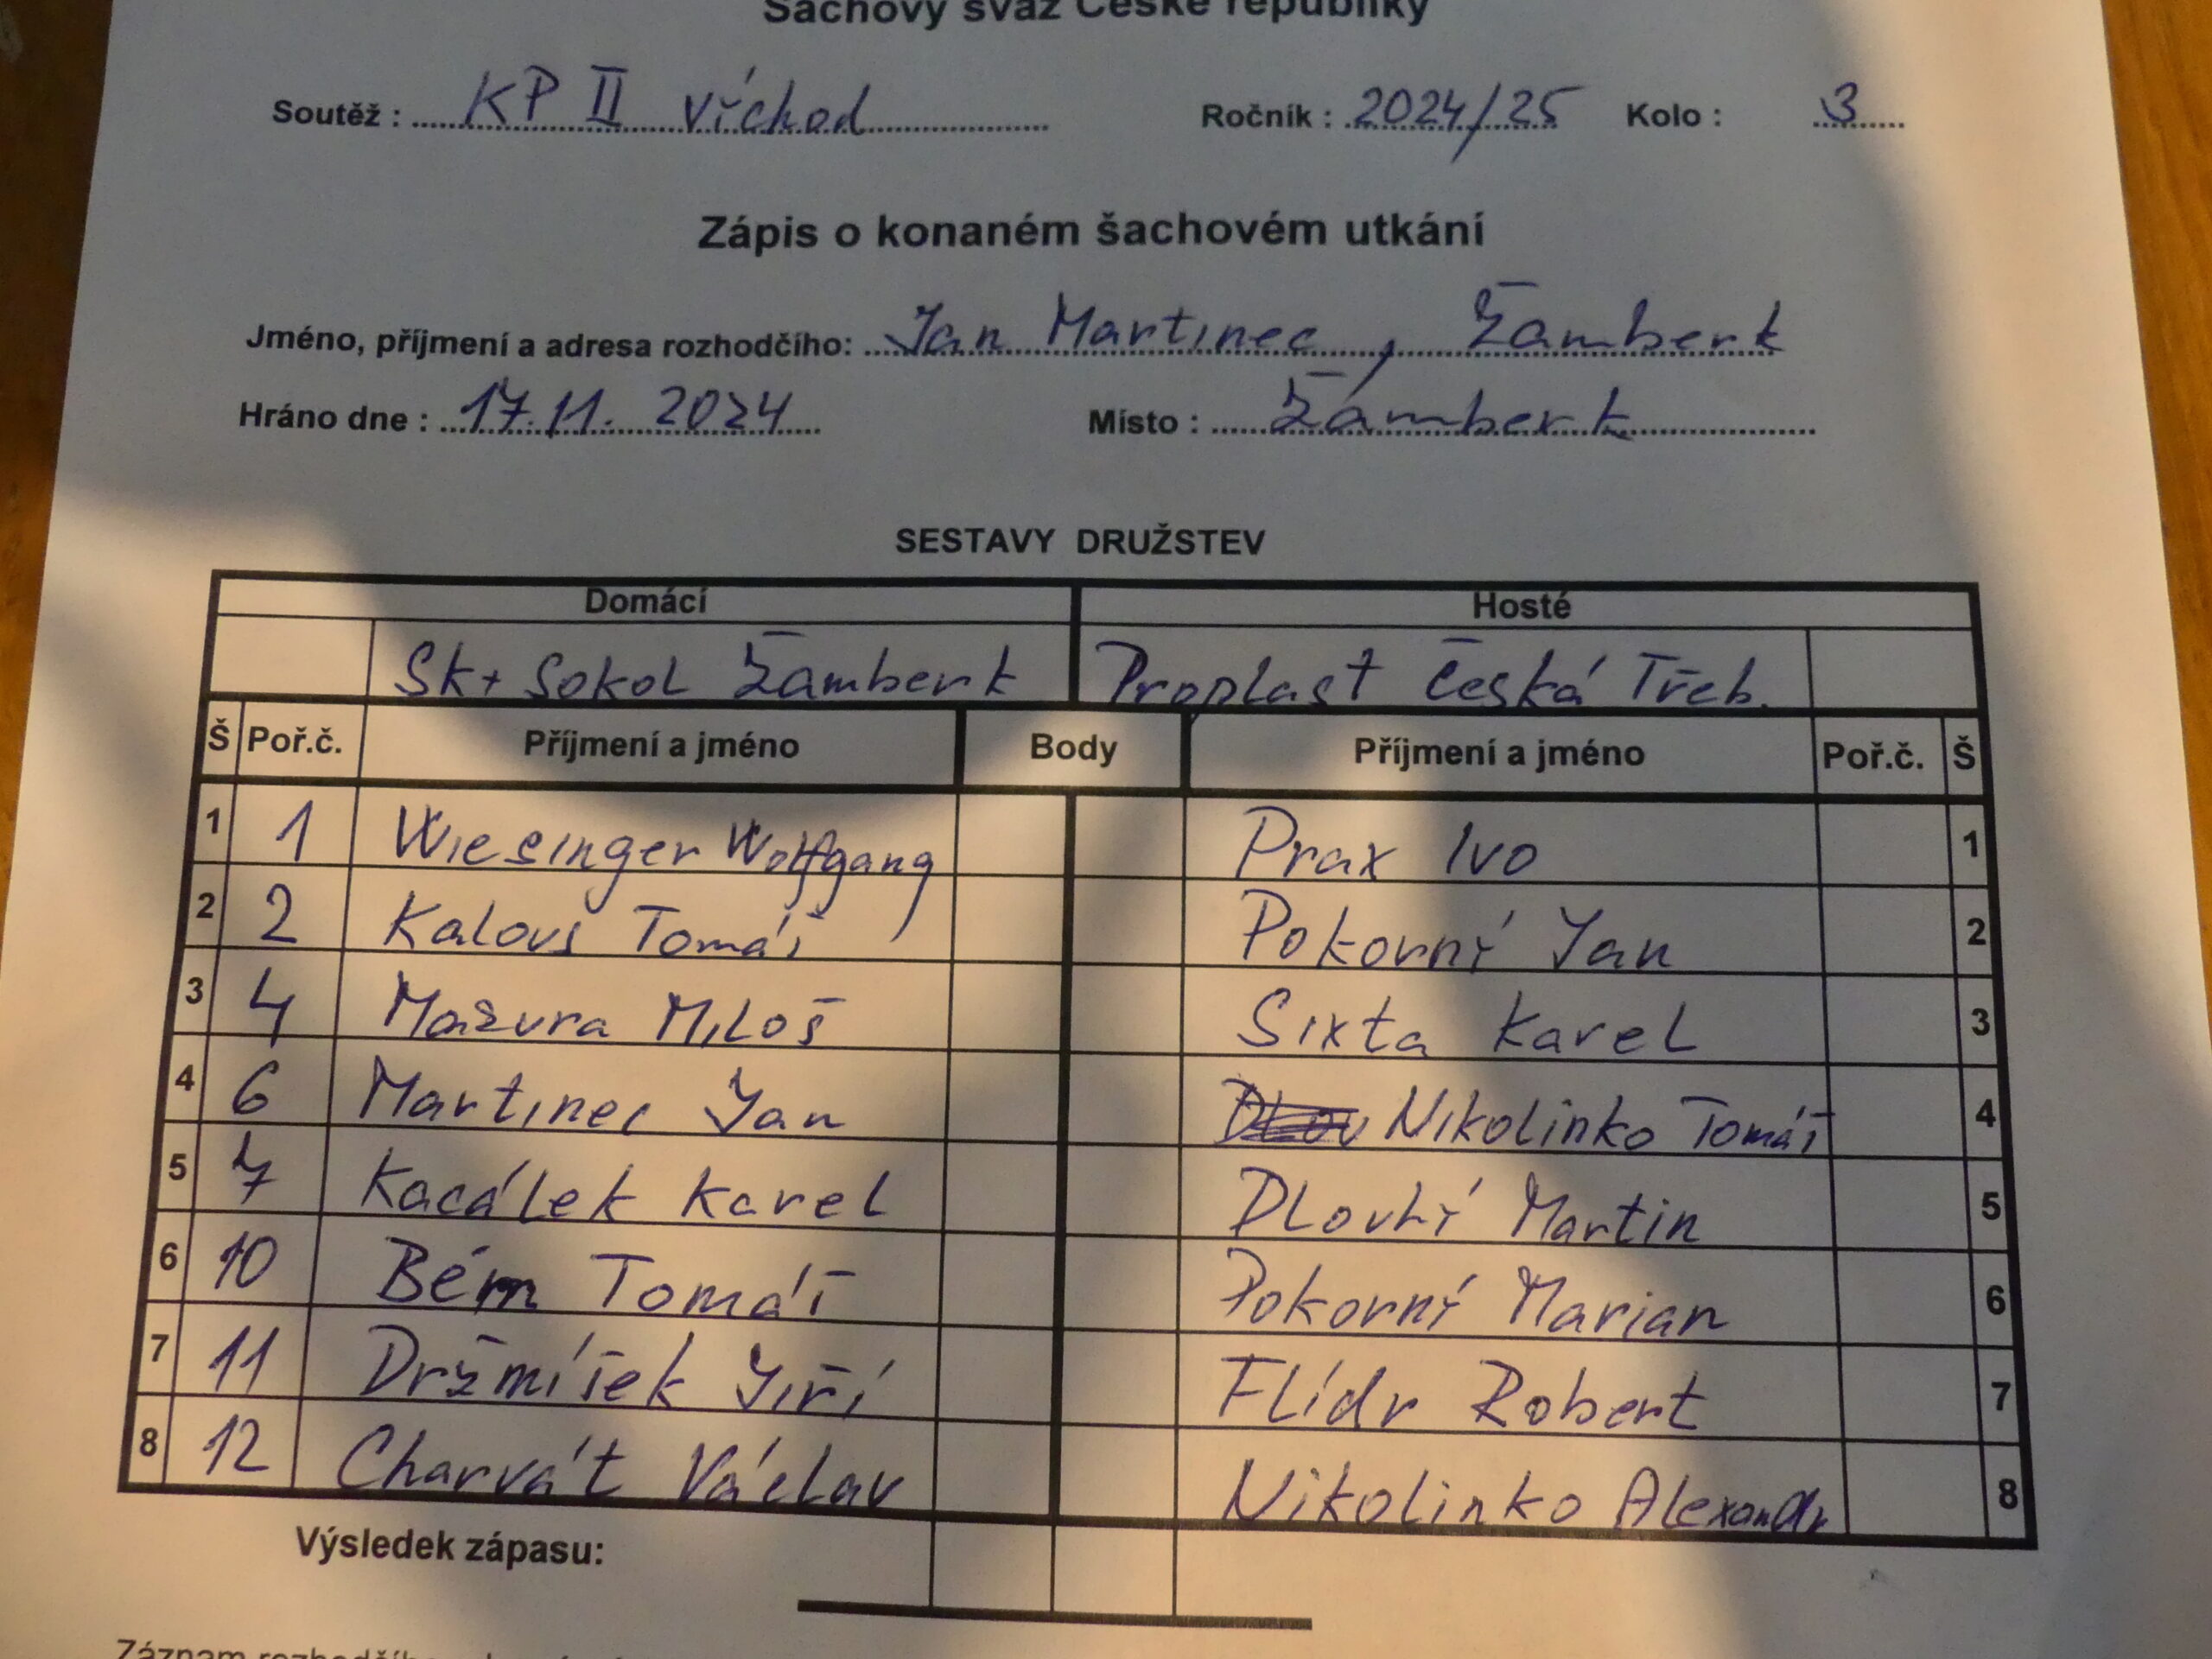 Šachový svaz České republiky
Soutěž : KP II východ Ročník : 2024/25 Kolo : 3
Zápis o konaném šachovém utkání
Jméno, příjmení a adresa rozhodčího: Jan Martinec, Žamberk
Hráno dne : 17.11. 2024 Místo : Žamberk
SESTAVY DRUŽSTEV
Domácí Hosté
Sk+ Sokol Žamberk Proplast Česká Třeb.
Š Poř.č. Příjmení a jméno Body Příjmení a jméno Poř.č. Š
1 1 Wiesinger Wolfgang Prax Ivo 1
2 2 Kalous Tomáš Pokorný Jan 2
3 4 Mažura Miloš Sixta Karel 3
4 6 Martinec Jan Nikolinko Tomáš 4
5 7 Kacálek Karel Dlouhý Martin 5
6 10 Bém Tomáš Pokorný Marian 6
7 11 Držmíšek Jiří Flídr Robert 7
8 12 Charvát Václav Nikolinko Alexandr 8
Výsledek zápasu:
Záznam rozhodčího